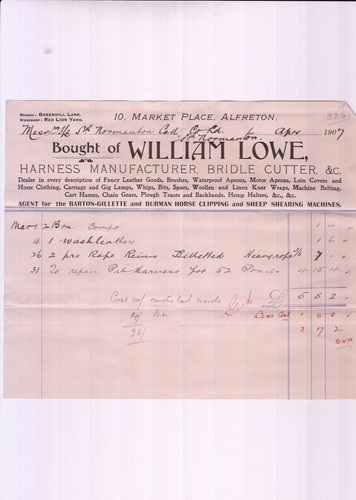 Branch: GREENHILL LANE.
Workshop: RED LION YARD.
10, MARKET PLACE, ALFRETON,
Messrs The Sth Normanton Coll Co Ld
Sth Normanton. Apr 1907
Bought of WILLIAM LOWE,
HARNESS MANUFACTURER, BRIDLE CUTTER, &c.
Dealer in every description of Fancy Leather Goods, Brushes, Waterproof Aprons, Motor Aprons, Loin Covers and
Horse Clothing, Carriage and Gig Lamps, Whips, Bits, Spurs, Woollen and Linen Knee Wraps, Machine Belting,
Cart Hames, Chain Gears, Plough Traces and Backbands, Hemp Halters, &c., &c.
AGENT for the BARTON-GILLETTE and BURMAN HORSE CLIPPING and SHEEP SHEARING MACHINES.
Mar 1 2 Compo 1 4
1 Washleather 1 6
26 2 prs Rope Reins 7
31 To repair Pit Harness for 52 Ponies 4 15 4
£ 5 5 2
Less Coal 1 8 0
3 17 2